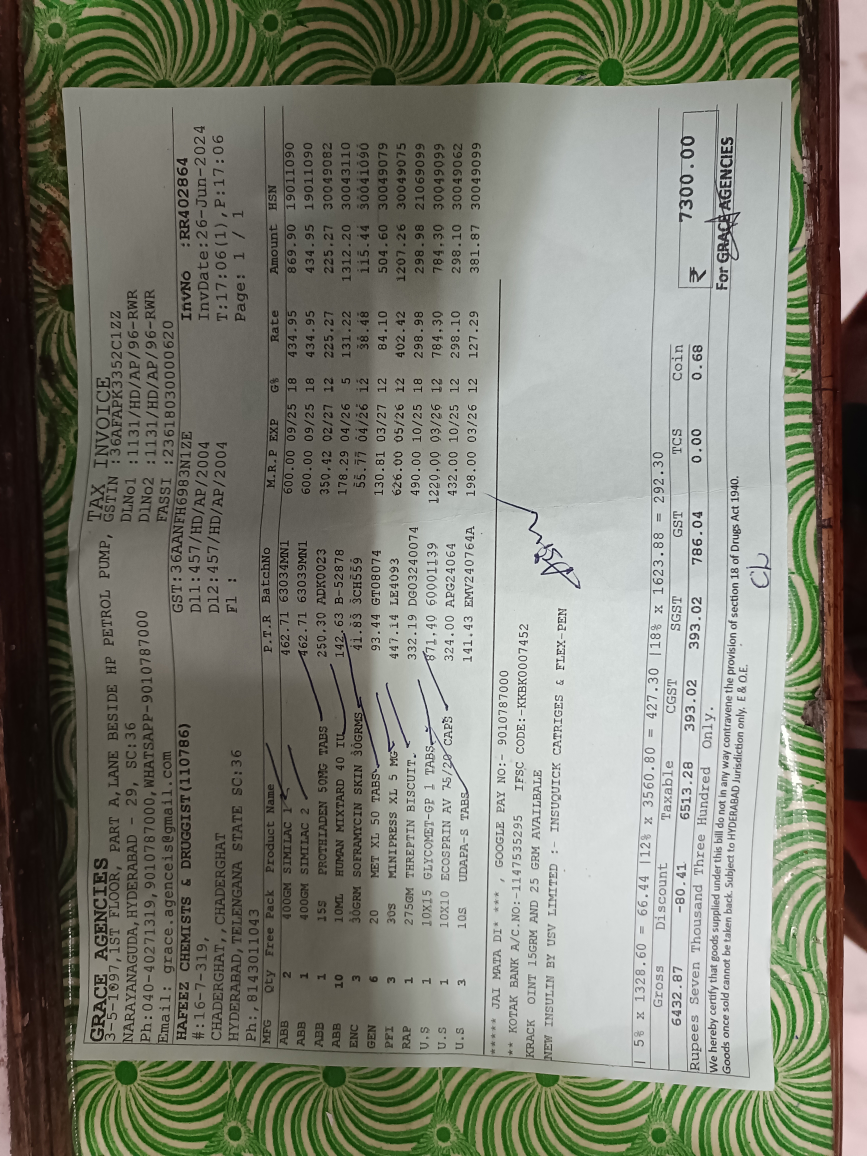 TAX INVOICE
GRACE AGENCIES
3-5-1097,1ST FLOOR, PART A,LANE BESIDE HP PETROL PUMP,
NARAYANAGUDA,HYDERABAD - 29, SC:36
Ph:040-40271319,9010787000,WHATSAPP-9010787000
Email: grace.agenceis@gmail.com
GSTIN :36AFAPK3352C1ZZ
DLNo1 :1131/HD/AP/96-RWR
DlNo2 :1131/HD/AP/96-RWR
FASSI :23618030000620
HAFEEZ CHEMISTS & DRUGGIST(110786)
#:16-7-319,
CHADERGHAT,,CHADERGHAT
HYDERABAD,TELENGANA STATE SC:36
Ph:,8143011043
GST:36AANFH6983N1ZE
Dl1:457/HD/AP/2004
Dl2:457/HD/AP/2004
Fl :
InvNo :RR402864
InvDate:26-Jun-2024
T:17:06(1),P:17:06
Page: 1 / 1
MFG Qty Free Pack Product Name P.T.R BatchNo M.R.P EXP G% Rate Amount HSN
ABB 2 400GM SIMILAC 1 462.71 63034MN1 600.00 09/25 18 434.95 869.90 19011090
ABB 1 400GM SIMILAC 2 462.71 63039MN1 600.00 09/25 18 434.95 434.95 19011090
ABB 1 15S PROTHIADEN 50MG TABS 250.30 ADK0023 350.42 02/27 12 225.27 225.27 30049082
ABB 10 10ML HUMAN MIXTARD 40 IU 142.63 B-52878 178.29 04/26 5 131.22 1312.20 30043110
ENC 3 30GRM SOFRAMYCIN SKIN 30GRMS 41.83 3CH559 55.77 04/26 12 38.48 115.44 30041090
GEN 6 20 MET XL 50 TABS 93.44 GT08074 130.81 03/27 12 84.10 504.60 30049079
PFI 3 30S MINIPRESS XL 5 MG 447.14 LE4093 626.00 05/26 12 402.42 1207.26 30049075
RAP 1 275GM THREPTIN BISCUIT. 332.19 DG03240074 490.00 10/25 18 298.98 298.98 21069099
U.S 1 10X15 GLYCOMET-GP 1 TABS 871.40 60001139 1220.00 03/26 12 784.30 784.30 30049099
U.S 1 10X10 ECOSPRIN AV 75/20 CAPS 324.00 APG24064 432.00 10/25 12 298.10 298.10 30049062
U.S 3 10S UDAPA-S TABS 141.43 EMV240764A 198.00 03/26 12 127.29 381.87 30049099
***** JAI MATA DI* *** , GOOGLE PAY NO:- 9010787000
** KOTAK BANK A/C.NO:-1147535295 IFSC CODE:-KKBK0007452
KRACK OINT 15GRM AND 25 GRM AVAILBALE
NEW INSULIN BY USV LIMITED :- INSUQUICK CATRIGES & FLEX-PEN
| 5% x 1328.60 = 66.44 |12% x 3560.80 = 427.30 |18% x 1623.88 = 292.30
Gross Discount Taxable CGST SGST GST TCS Coin
6432.87 -80.41 6513.28 393.02 393.02 786.04 0.00 0.68
₹ 7300.00
Rupees Seven Thousand Three Hundred Only.
We hereby certify that goods supplied under this bill do not in any way contravene the provision of section 18 of Drugs Act 1940.
Goods once sold cannot be taken back. Subject to HYDERABAD Jurisdiction only. E & O.E.
For GRACE AGENCIES